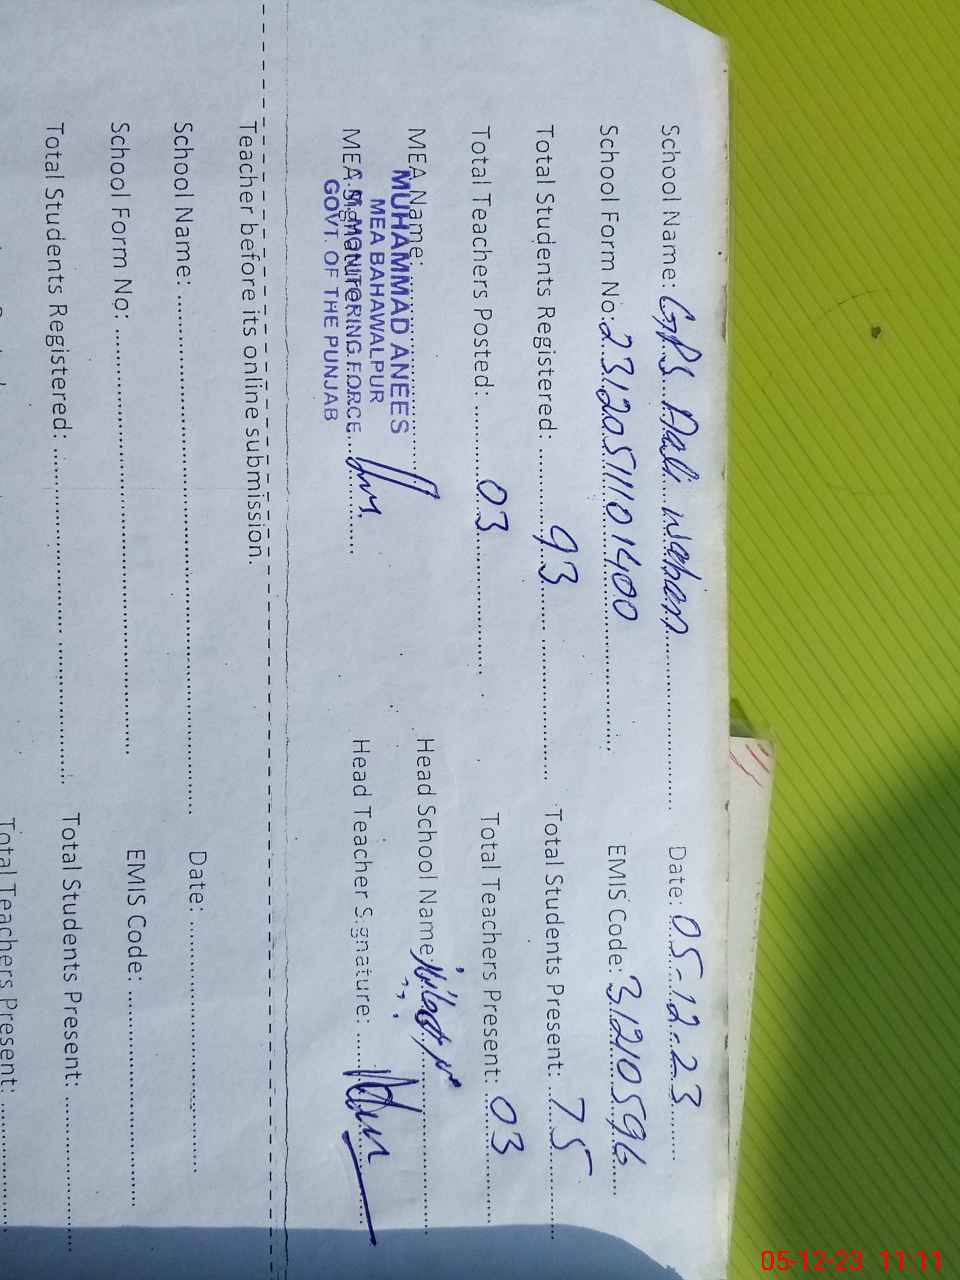 School Name: GPS Aali wahan Date: 05-12-23
School Form No: 23120511101400 EMIS Code: 31210596
Total Students Registered: 93 Total Students Present: 75
Total Teachers Posted: 03 Total Teachers Present: 03
MEA Name: Head School Name:
MUHAMMAD ANEES
MEA BAHAWALPUR
MEA Signature: Head Teacher Signature:
MONITORING FORCE
GOVT. OF THE PUNJAB
Teacher before its online submission.
School Name: Date:
School Form No: EMIS Code:
Total Students Registered: Total Students Present:
Total Teachers Present:
05-12-23 11:11